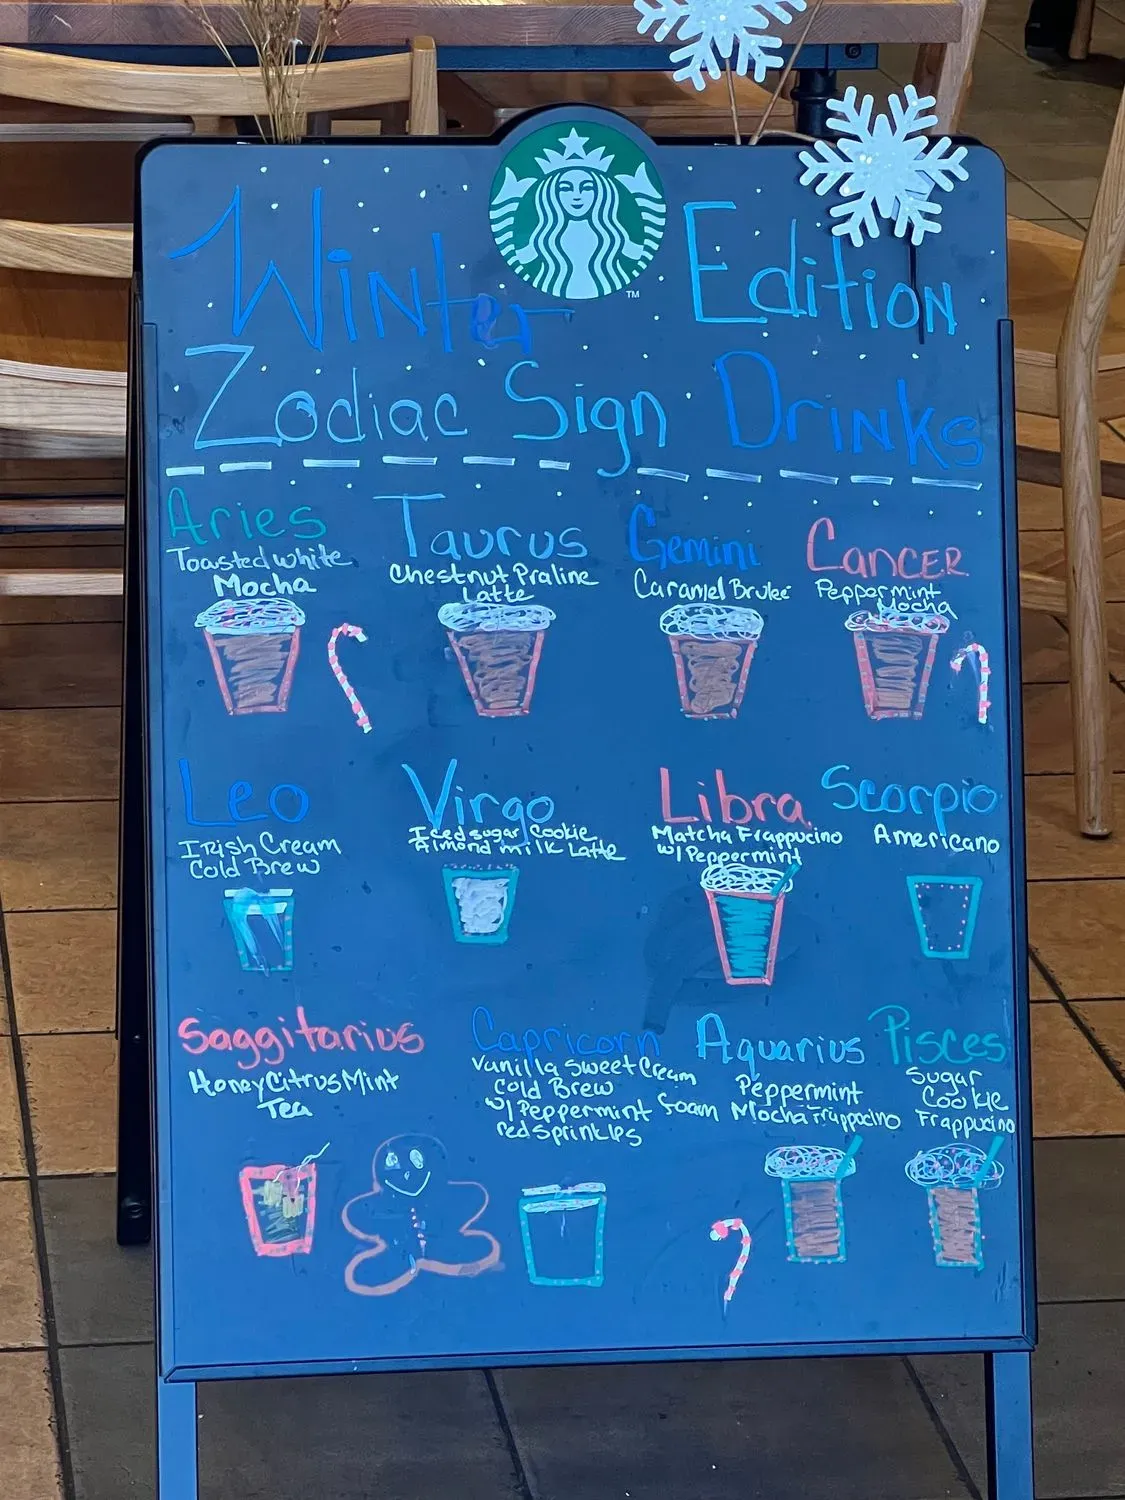 Winter Edition
Zodiac Sign Drinks
Aries
Toasted white
Mocha
Taurus
Chestnut Praline
Latte
Gemini
Caramel Brulee
Cancer
Peppermint
Mocha
Leo
Irish Cream
Cold Brew
Virgo
Iced sugar Cookie
Almond milk Latte
Libra
Matcha Frappucino
w/ Peppermint
Scorpio
Americano
Saggitarius
Honey Citrus Mint
Tea
Capricorn
Vanilla Sweet Cream
Cold Brew
w/ Peppermint foam
red sprinkles
Aquarius
Peppermint
Mocha Frappucino
Pisces
Sugar
Cookie
Frappucino
TM